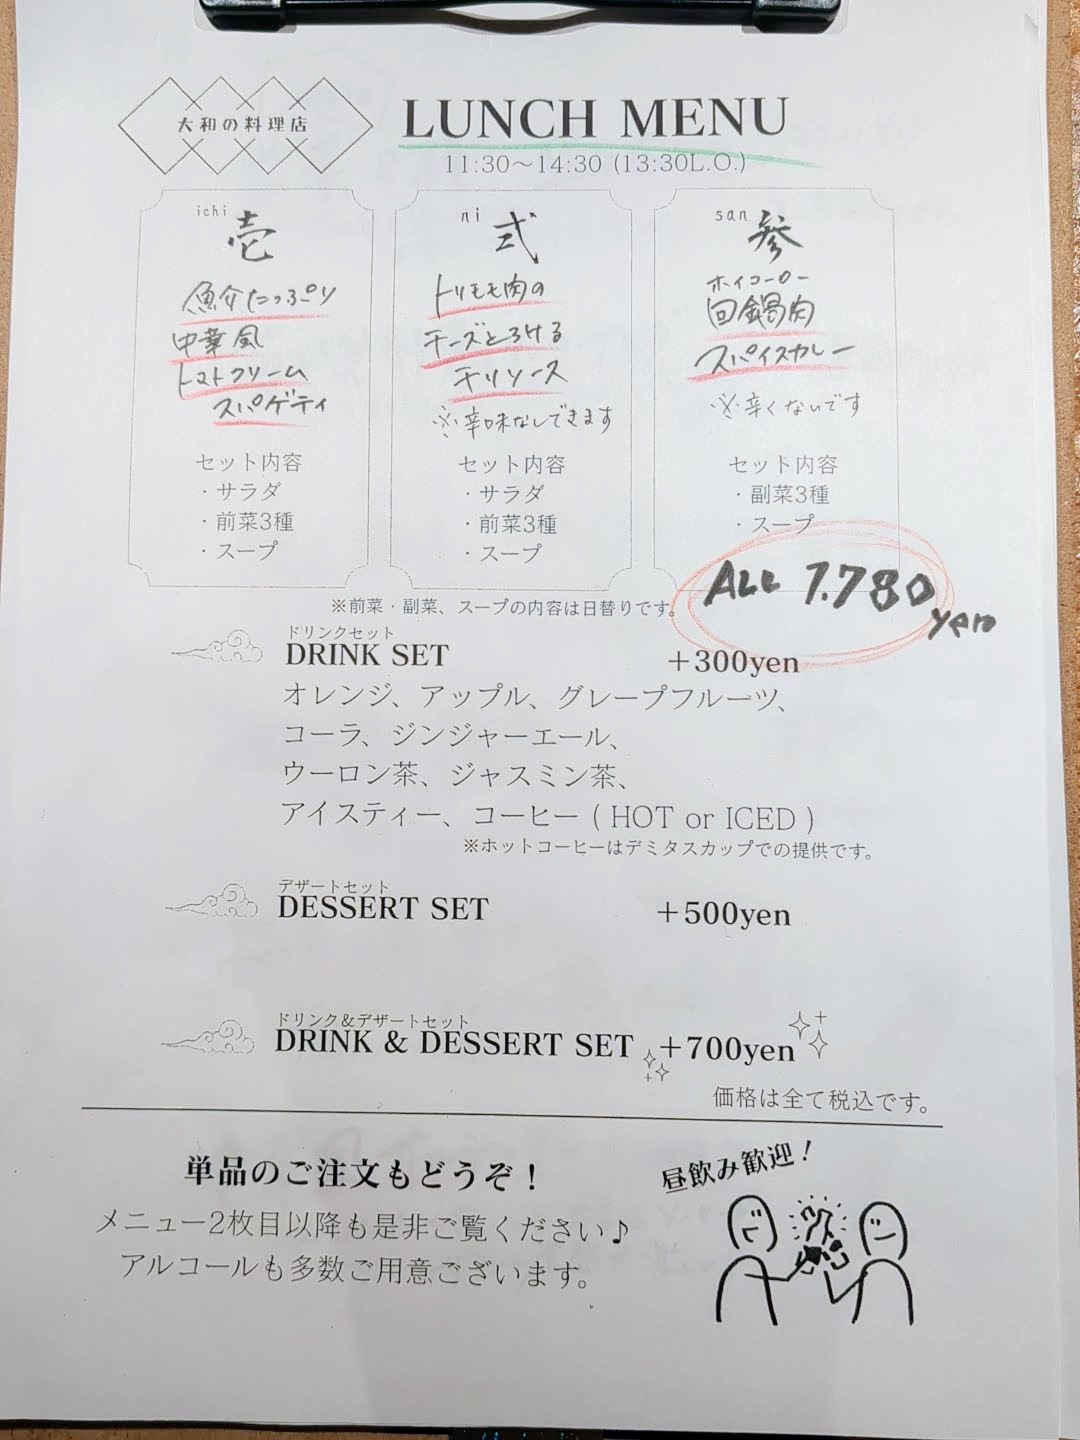 大和の料理店
LUNCH MENU
11:30〜14:30 (13:30L.O.)
ichi
壱
魚介たっぷり
中華風
トマトクリーム
スパゲティ
セット内容
・サラダ
・前菜3種
・スープ
ni
弐
トリモモ肉の
チーズとろける
チリソース
※辛味なしできます
セット内容
・サラダ
・前菜3種
・スープ
san
参
ホイコーロー
回鍋肉
スパイスカレー
※辛くないです
セット内容
・副菜3種
・スープ
ALL 1.780
yen
※前菜・副菜、スープの内容は日替りです。
ドリンクセット
DRINK SET +300yen
オレンジ、アップル、グレープフルーツ、
コーラ、ジンジャーエール、
ウーロン茶、ジャスミン茶、
アイスティー、コーヒー ( HOT or ICED )
※ホットコーヒーはデミタスカップでの提供です。
デザートセット
DESSERT SET +500yen
ドリンク&デザートセット
DRINK & DESSERT SET +700yen
価格は全て税込です。
単品のご注文もどうぞ！
メニュー2枚目以降も是非ご覧ください♪
アルコールも多数ご用意ございます。
昼飲み歓迎！